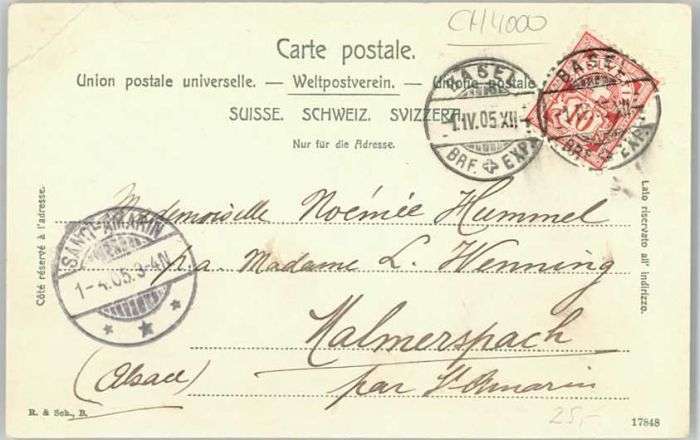 CH4000
Carte postale.
Union postale universelle. — Weltpostverein. — Unione postale
SUISSE. SCHWEIZ. SVIZZERA.
Nur für die Adresse.
BASEL
1.IV.05.XII
BRF. EXP.
BASEL
BRF. EXP.
Côté réservé à l'adresse.
Lato riservato all' indirizzo.
SANKT-AMARIN
1-4.05.3-4N
Mademoiselle Noémée Hummel
p.a. Madame L. Wenning
Malmerspach
(Alsace) par St Amarin
R. & Sch., B.
25,-
17848